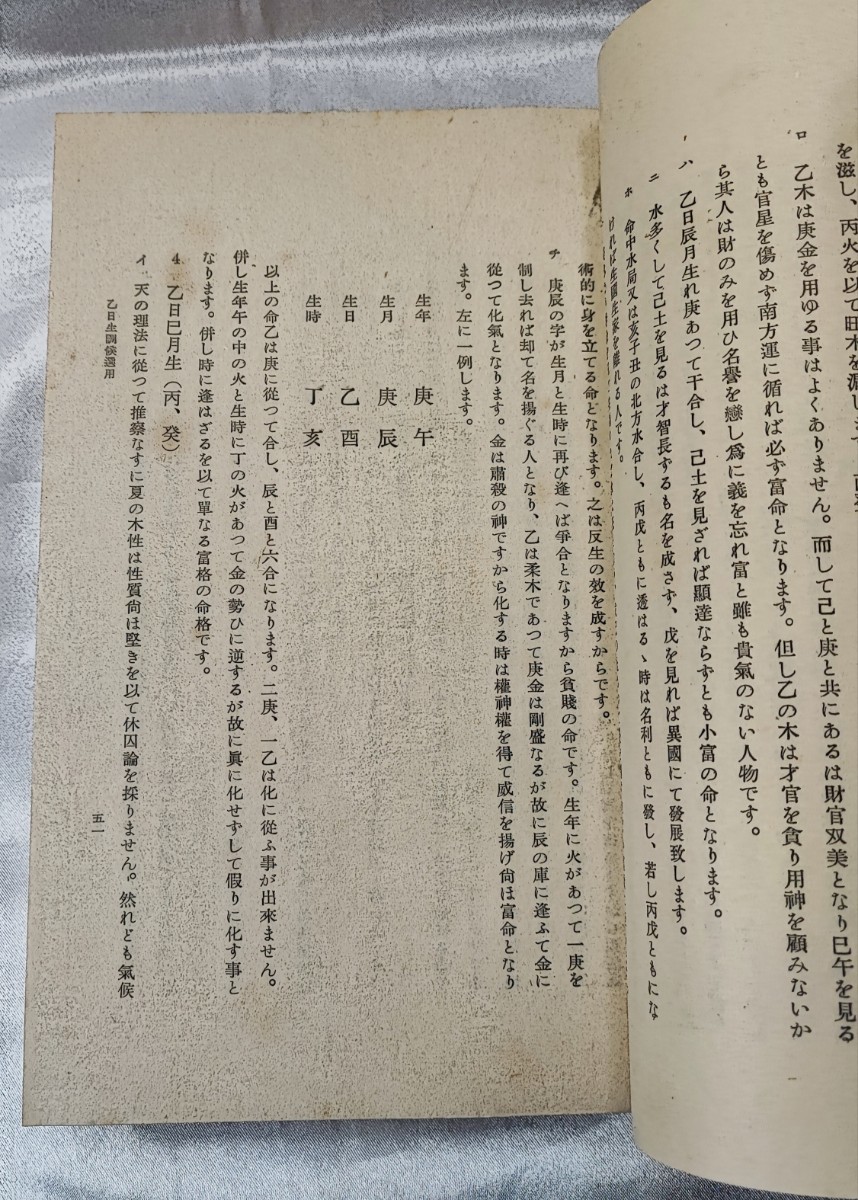 を滋し、丙火を以て旺木を
ロ　乙木は庚金を用ゆる事はよくありません。而して己と庚と共にあるは財官双美となり巳午を見る
とも官星を傷めず南方運に循れば必ず富命となります。但し乙の木は才官を貪り用神を顧みないか
ら其人は財のみを用ひ名譽を戀し爲に義を忘れ富と雖も貴氣のない人物です。
ハ　乙日辰月生れ庚あつて干合し、己土を見ざれば顯達ならずとも小富の命となります。
ニ　水多くして己土を見るは才智長ずるも名を成さず、戊を見れば異國にて發展致します。
ホ　命中水局又は亥子丑の北方水合し、丙戊ともに透はるゝ時は名利ともに發し、若し丙戊ともにな
ければ
を離れる人です。
術的に身を立てる命となります。之は反生の效を成すからです。
チ　庚辰の字が生月と生時に再び逢へば爭合となりますから貧賤の命です。生年に火があつて一庚を
制し去れば却て名を揚ぐる人となり、乙は柔木であつて庚金は剛盛なるが故に辰の庫に逢ふて金に
從つて化氣となります。金は肅殺の神ですから化する時は權神權を得て威信を揚げ尙ほ富命となり
ます。左に一例します。
生年　庚午
生月　庚辰
生日　乙酉
生時　丁亥
以上の命乙は庚に從つて合し、辰と酉と六合になります。二庚、一乙は化に從ふ事が出來ません。
併し生年午の中の火と生時に丁の火があつて金の勢ひに逆するが故に眞に化せずして假りに化す事と
なります。併し時に逢はざるを以て單なる富格の命格です。
4　乙日巳月生（丙、癸）
イ　天の理法に從つて推察なすに夏の木性は性質尙ほ堅きを以て休囚論を採りません。然れども氣候
乙日生調候選用
五一